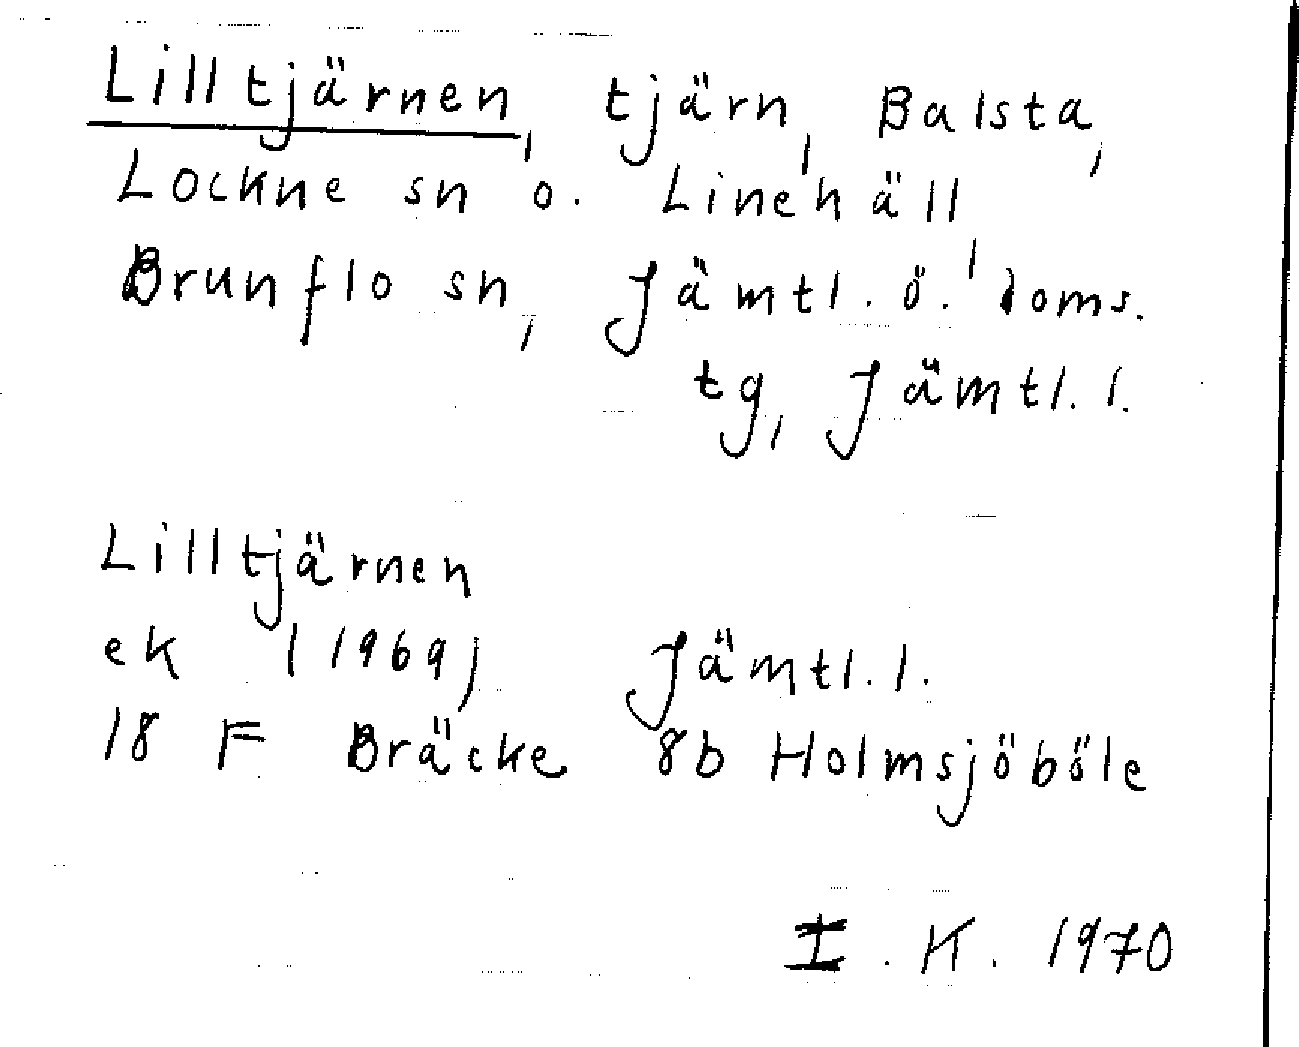 Lilltjärnen, tjärn, Balsta,
Lockne sn o. Linehäll,
Brunflo sn, Jämtl. ö. doms.
tg, Jämtl. l.
Lilltjärnen
ek (1969) Jämtl. l.
18 F Bräcke 8b Holmsjöböle
I. K. 1970